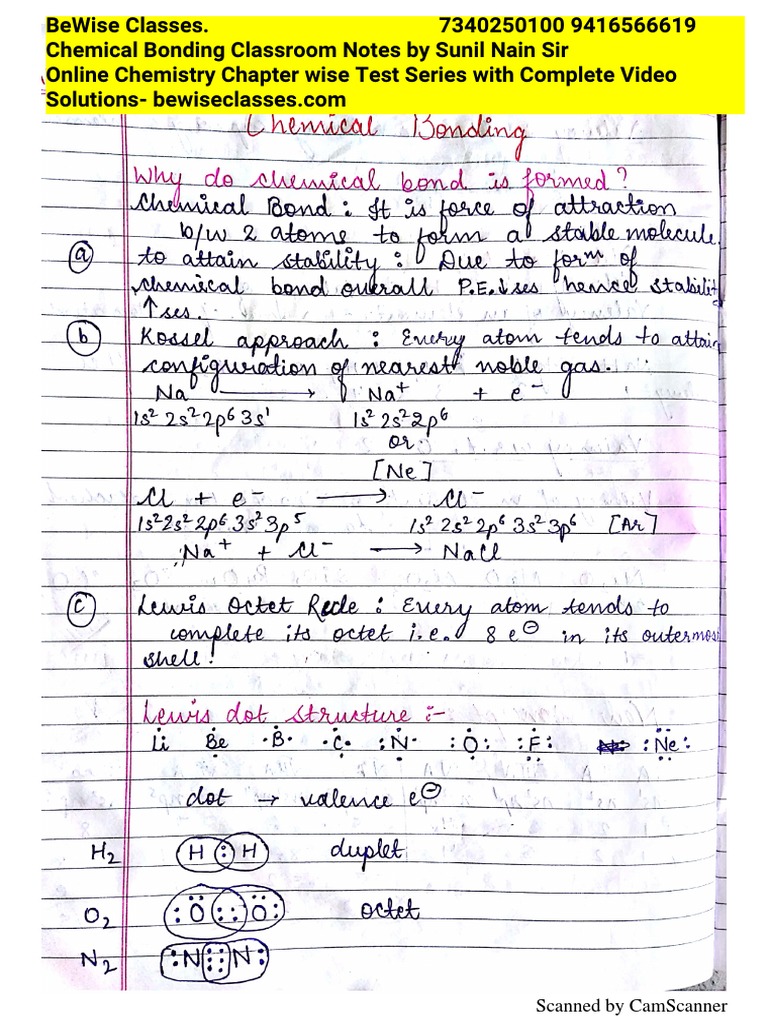 BeWise Classes. 7340250100 9416566619
Chemical Bonding Classroom Notes by Sunil Nain Sir
Online Chemistry Chapter wise Test Series with Complete Video
Solutions- bewiseclasses.com
Chemical Bonding
Why do chemical bond is formed?
Chemical Bond : It is force of attraction
b/w 2 atoms to form a stable molecule.
(a) to attain stability : Due to formⁿ of
chemical bond overall P.E.↓ses hence stabilit
↑ses.
(b) Kossel approach : Every atom tends to attain
configuration of nearest noble gas.
Na ⟶ Na⁺ + e⁻
1s² 2s² 2p⁶ 3s¹ 1s² 2s² 2p⁶
or
[Ne]
Cl + e⁻ ⟶ Cl⁻
1s² 2s² 2p⁶ 3s² 3p⁵ 1s² 2s² 2p⁶ 3s² 3p⁶ [Ar]
Na⁺ + Cl⁻ ⟶ NaCl
(c) Lewis Octet Rule : Every atom tends to
complete its octet i.e. 8 e⊖ in its outermos
shell.
Lewis dot structure :-
Li Be ·B· ·C· :N· :O: :F: :Ne:
dot → valence e⊖
H₂ H : H duplet
O₂ :O::O: octet
N₂ :N:::N:
Scanned by CamScanner